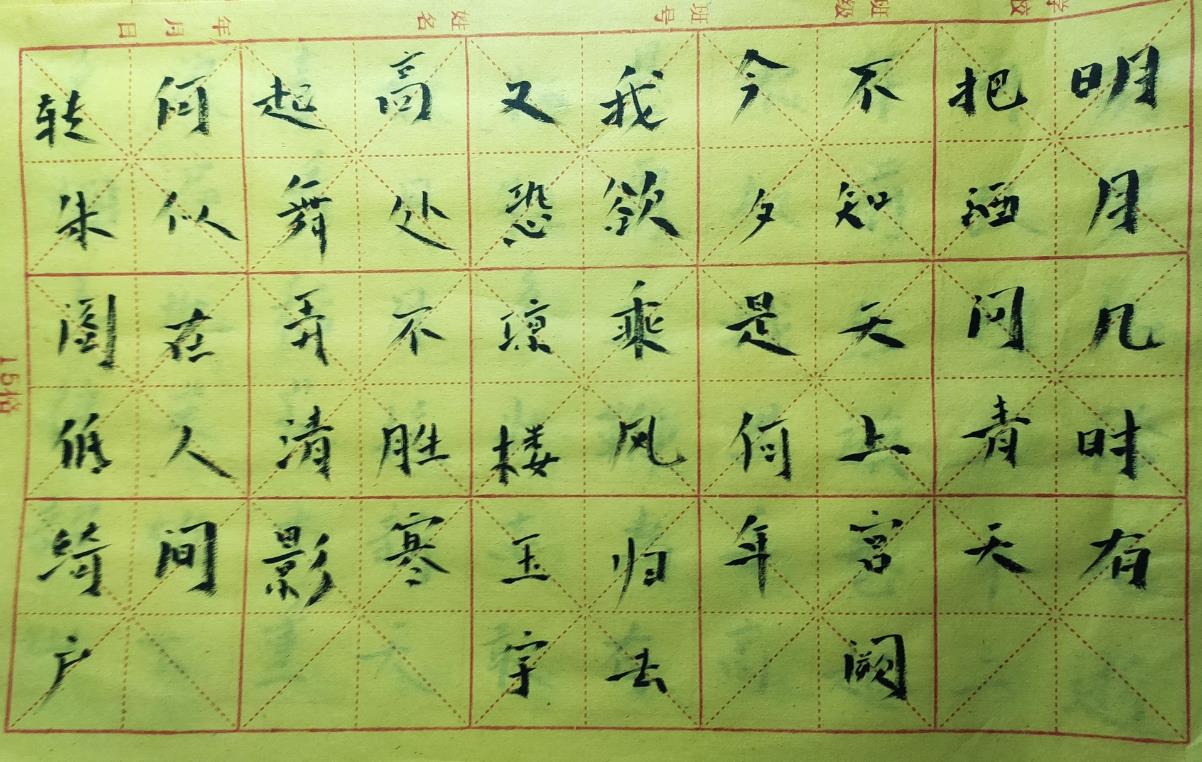 学校
班级
班号
姓名
年月日
明月几时有
把酒问青天
不知天上宫阙
今夕是何年
我欲乘风归去
又恐琼楼玉宇
高处不胜寒
起舞弄清影
何似在人间
转朱阁低绮户